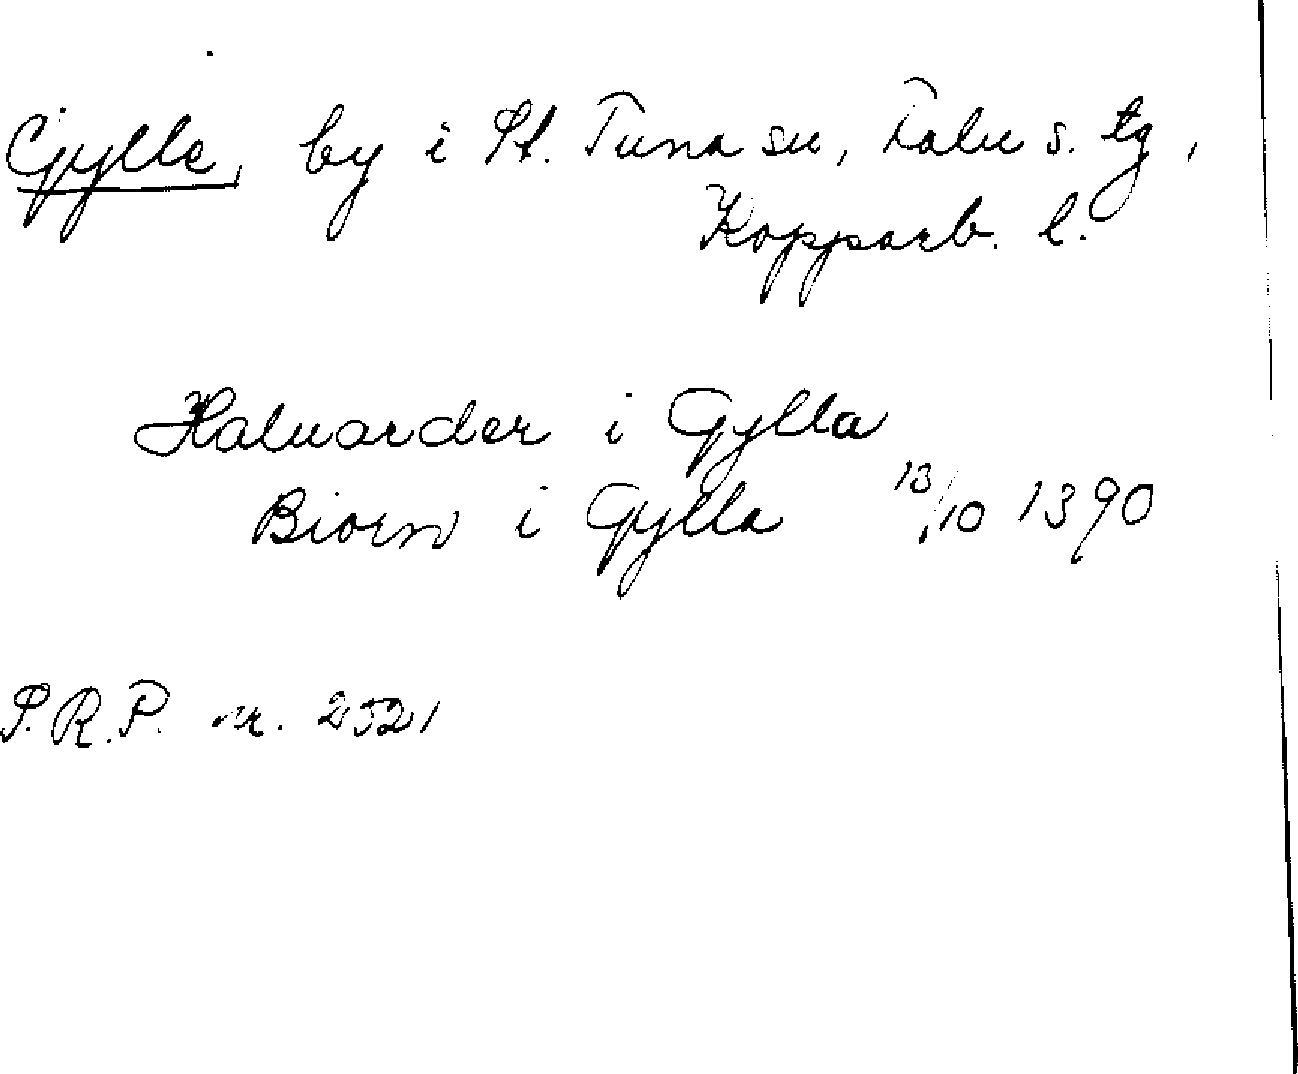 Gylle, by i St. Tuna sn, Falu s. tg,
Kopparb. l.
Haluarder i Gylla
Biorn i Gylla 13/10 1390
S.R.P. nr. 2521